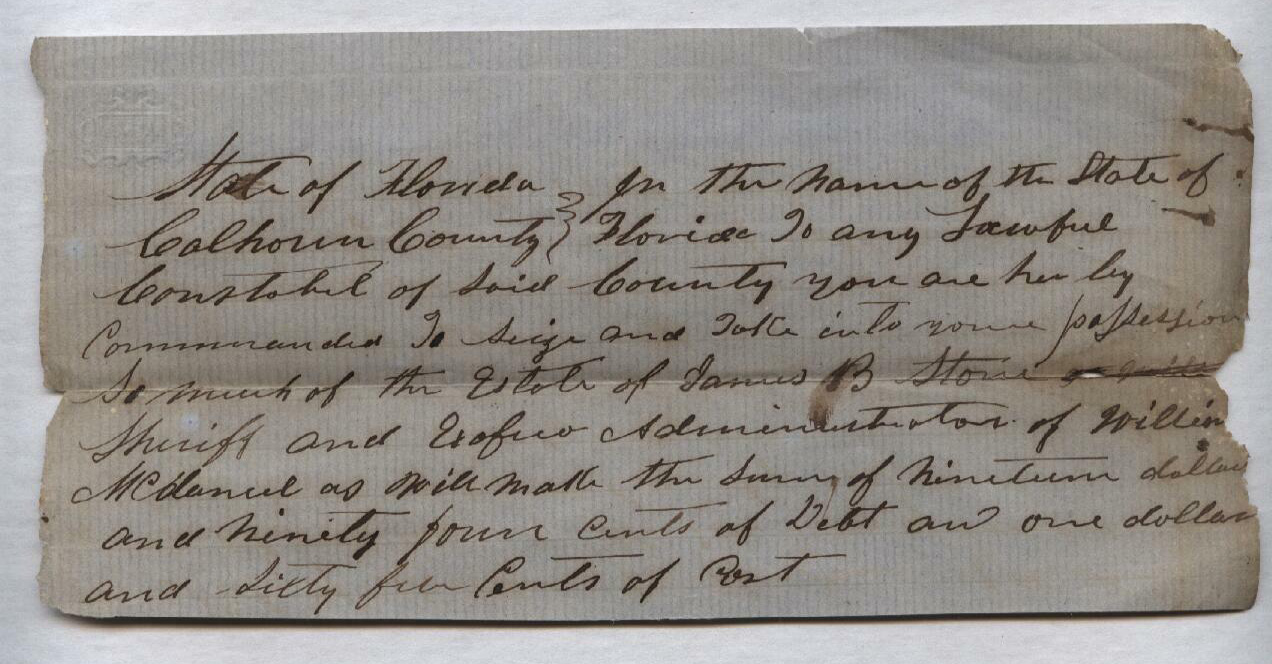 State of Florida } In the name of the State of
Calhoun County } Florida To any Lawful
Constabel of Said County you are her by
Commanded To Seize and Take into youre possession
So much of the Estate of James B Stone
Sheriff and Exofico Administrator of William
McDaniel as will make the Sum of Nineteen dollars
and Ninety four Cents of Debt and one dollar
and Sixty five Cents of Cost